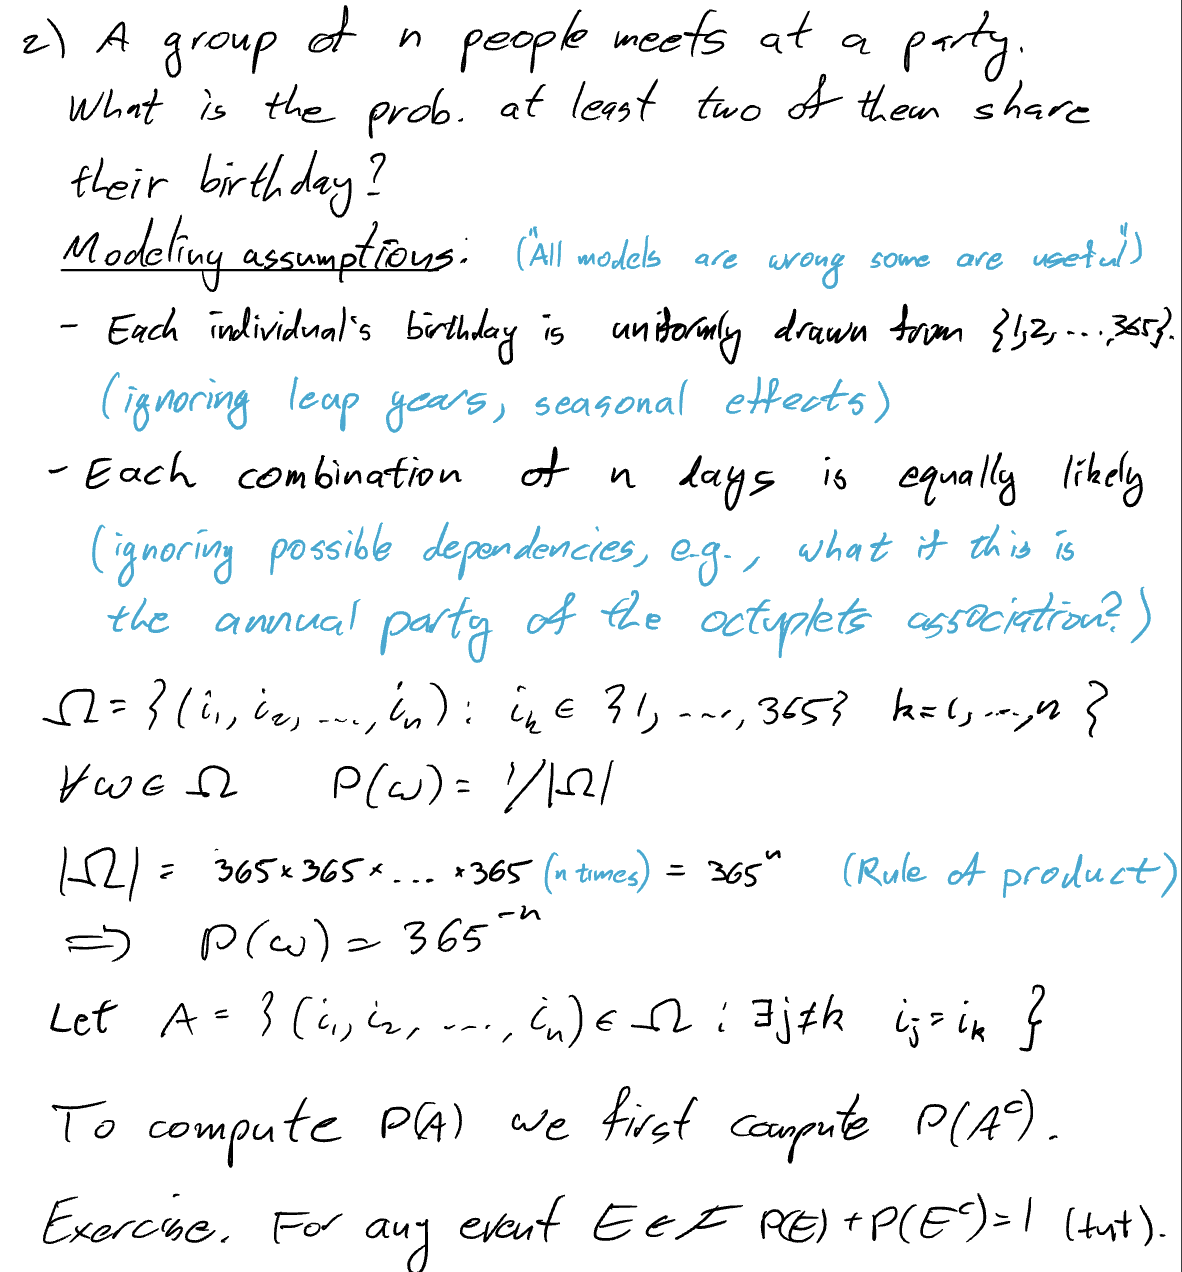 2) A group of n people meets at a party.
What is the prob. at least two of them share
their birthday?
Modeling assumptions: ("All models are wrong some are useful")
- Each individual's birthday is uniformly drawn from {1,2, ...,365}.
(ignoring leap years, seasonal effects)
- Each combination of n days is equally likely
(ignoring possible dependencies, e.g., what if this is
the annual party of the octuplets association?)
Ω = {(i₁, i₂, ..., iₙ) : iₖ ∈ {1, ..., 365} k=1, ..., n }
∀ω∈ Ω P(ω) = 1/|Ω|
|Ω| = 365×365×... ×365 (n times) = 365ⁿ (Rule of product)
⇒ P(ω) = 365⁻ⁿ
Let A = {(i₁, i₂, ..., iₙ) ∈ Ω : ∃j≠k iⱼ = iₖ }
To compute P(A) we first compute P(Aᶜ).
Exercise. For any event E∈F P(E) + P(Eᶜ)=1 (tut).